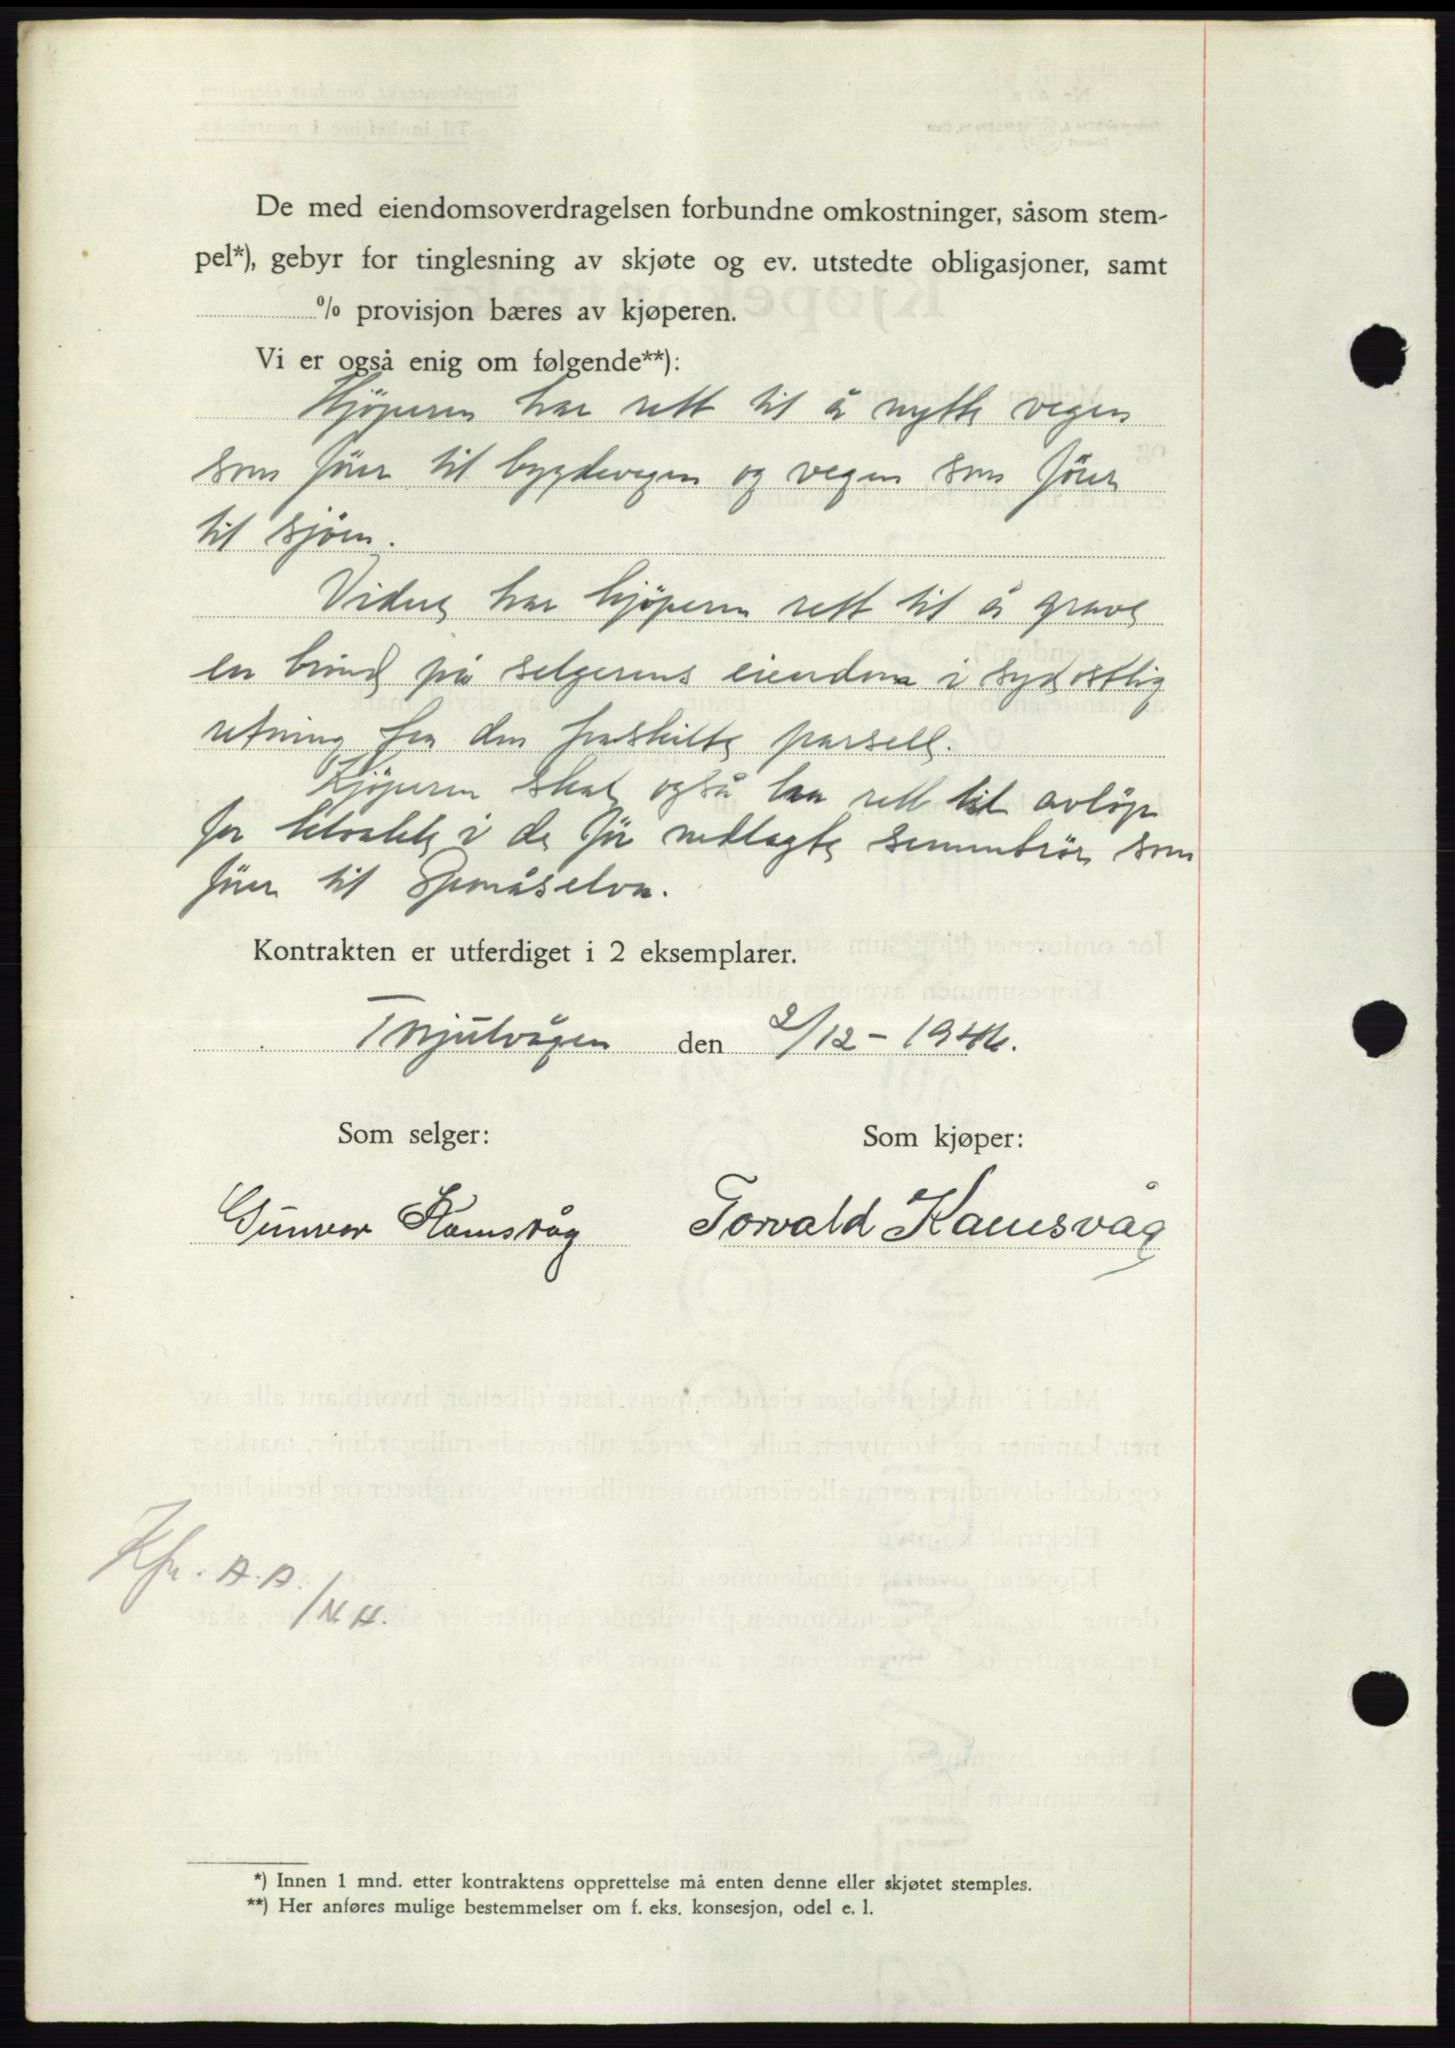 De med eiendomsoverdragelsen forbundne omkostninger, såsom stem-
pel*), gebyr for tinglesning av skjøte og ev. utstedte obligasjoner, samt
% provisjon bæres av kjøperen.
Vi er også enig om følgende**):
Kjöperen har rett til å nytte vegen
som förer til bygdevegen og vegen som förer
til sjöen.
Videre har kjöperen rett til å grave
en brönd på selgerens eiendom i sydostlig
retning fra den fraskilte parsell.
Kjöperen skal også ha rett til avlöp
for kloakk i de för nedlagte sementrör som
förer til
Kontrakten er utferdiget i 2 eksemplarer.
Torjulvågen den 2/12 - 1946.
Som selger: Som kjøper:
Gunvor Kamsvåg Torvald Kamsvåg
Kfr. A.A.
/N.H.
*) Innen 1 mnd. etter kontraktens opprettelse må enten denne eller skjøtet stemples.
**) Her anføres mulige bestemmelser om f. eks. konsesjon, odel e. l.